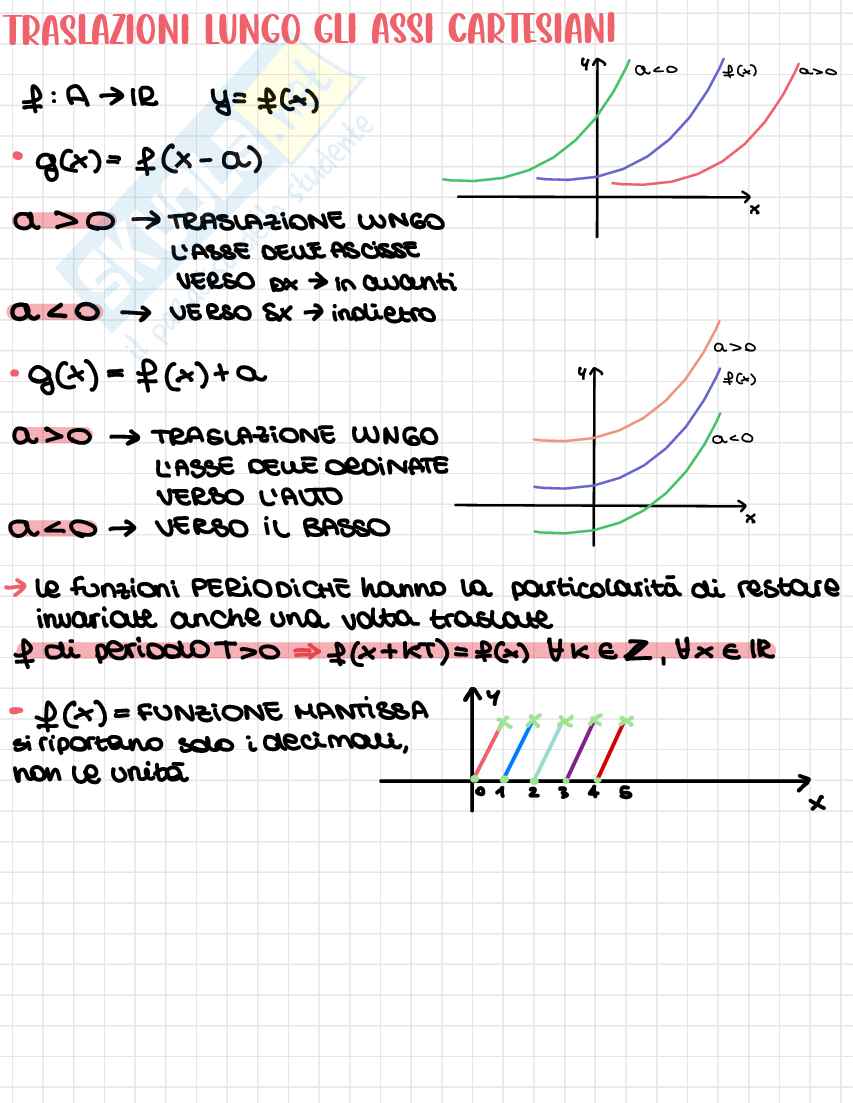 TRASLAZIONI LUNGO GLI ASSI CARTESIANI
f : A → IR    y = f(x)
• g(x) = f(x - a)
a > 0 → TRASLAZIONE LUNGO
L'ASSE DELLE ASCISSE
VERSO DX → in avanti
a < 0 → VERSO SX → indietro
y
a < 0
f(x)
a > 0
x
• g(x) = f(x) + a
a > 0 → TRASLAZIONE LUNGO
L'ASSE DELLE ORDINATE
VERSO L'ALTO
a < 0 → VERSO IL BASSO
y
a > 0
f(x)
a < 0
x
→ le funzioni PERIODICHE hanno la particolarità di restare
invariate anche una volta traslate
f di periodo T > 0 ⇒ f(x + KT) = f(x) ∀ K ∈ Z, ∀ x ∈ IR
• f(x) = FUNZIONE MANTISSA
si riportano solo i decimali,
non le unità
y
0 1 2 3 4 5
x
SKUOLA.net
il paradiso dello studente